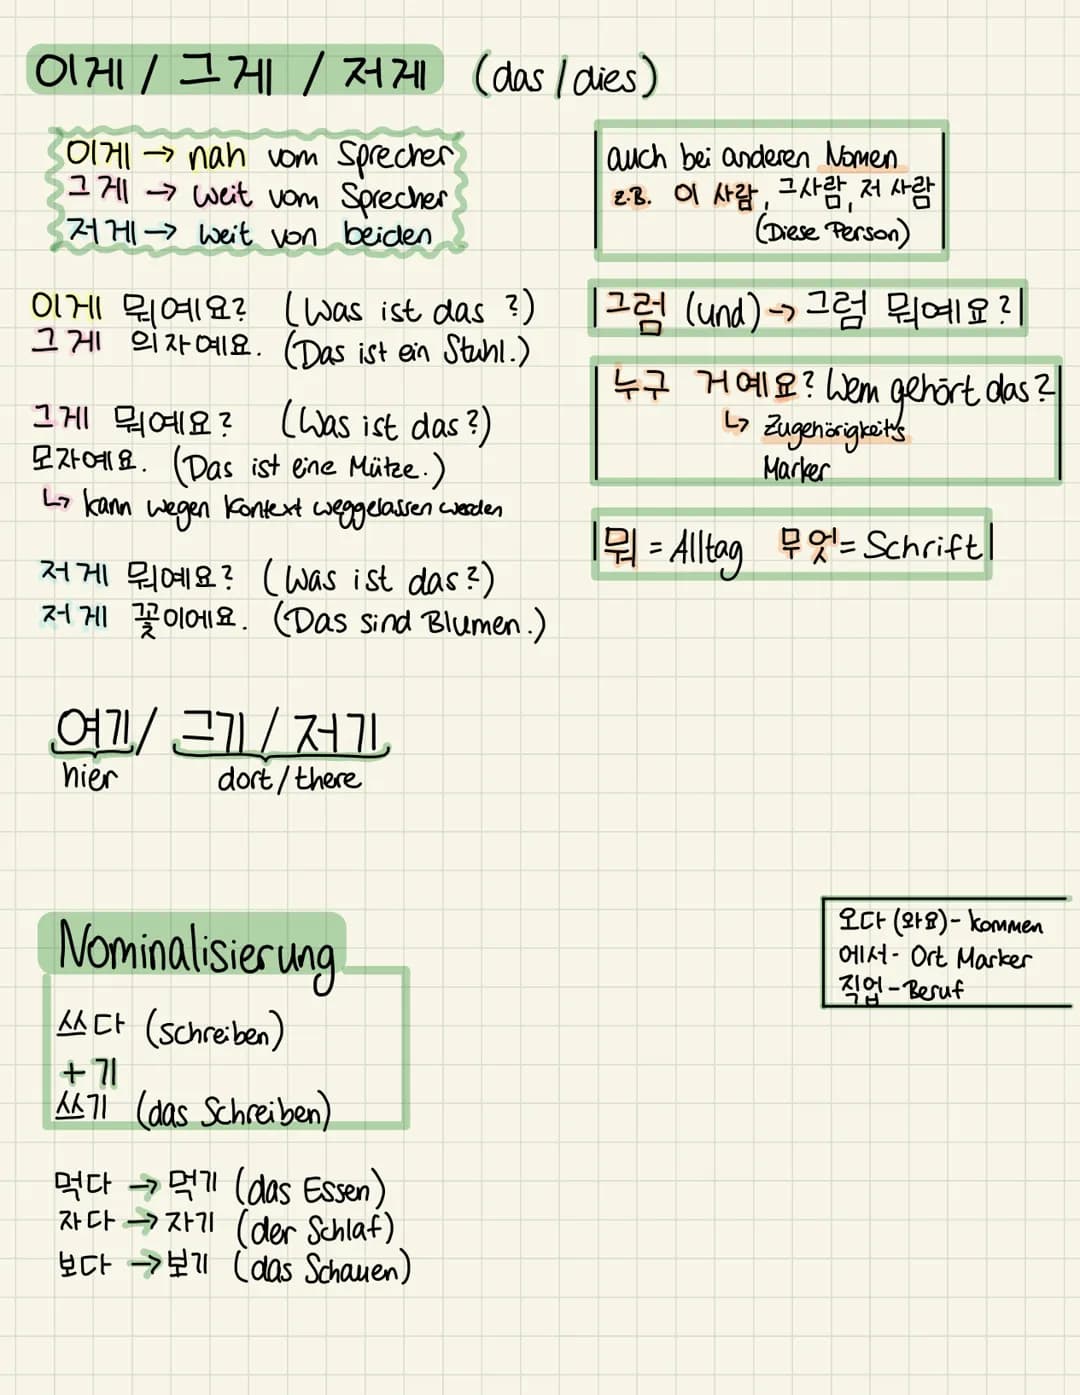 이게 / 그게 / 저게 (das / dies)
이게 → nah vom Sprecher
그게 → weit vom Sprecher
저게 → weit von beiden
auch bei anderen Nomen
z.B. 이 사람, 그사람, 저 사람
(Diese Person)
이게 뭐예요? (Was ist das ?)
그게 의자예요. (Das ist ein Stuhl.)
그게 뭐예요? (Was ist das?)
모자예요. (Das ist eine Mütze.)
↳ kann wegen Kontext weggelassen werden
저게 뭐예요? (Was ist das?)
저게 꽃이에요. (Das sind Blumen.)
그럼 (und) → 그럼 뭐예요?
누구 거예요? Wem gehört das?
↳ Zugehörigkeits
Marker
뭐 = Alltag 무엇 = Schrift
여기/ 그기 / 저기
hier dort / there
Nominalisierung
쓰다 (schreiben)
+기
쓰기 (das Schreiben)
먹다 → 먹기 (das Essen)
자다 → 자기 (der Schlaf)
보다 → 보기 (das Schauen)
오다 (와요) - kommen
에서 - Ort Marker
직업 - Beruf